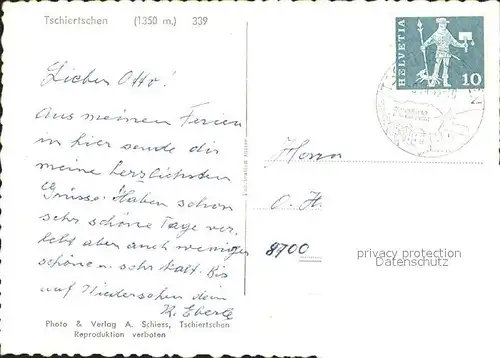 Tschiertschen (1350 m.) 339
Lieber Otto!
Aus meinen Ferien
in hier sende dir
meine herzlichsten
Grüsse. Haben schon
sehr schöne Tage ver-
lebt aber auch weniger
schöne u. sehr kalt. Bis
auf Wiedersehen dein
K. Eberle
Photo & Verlag A. Schiess, Tschiertschen
Reproduktion verboten
HELVETIA
10
Herrn
O. H.
8700
privacy protection
Datenschutz